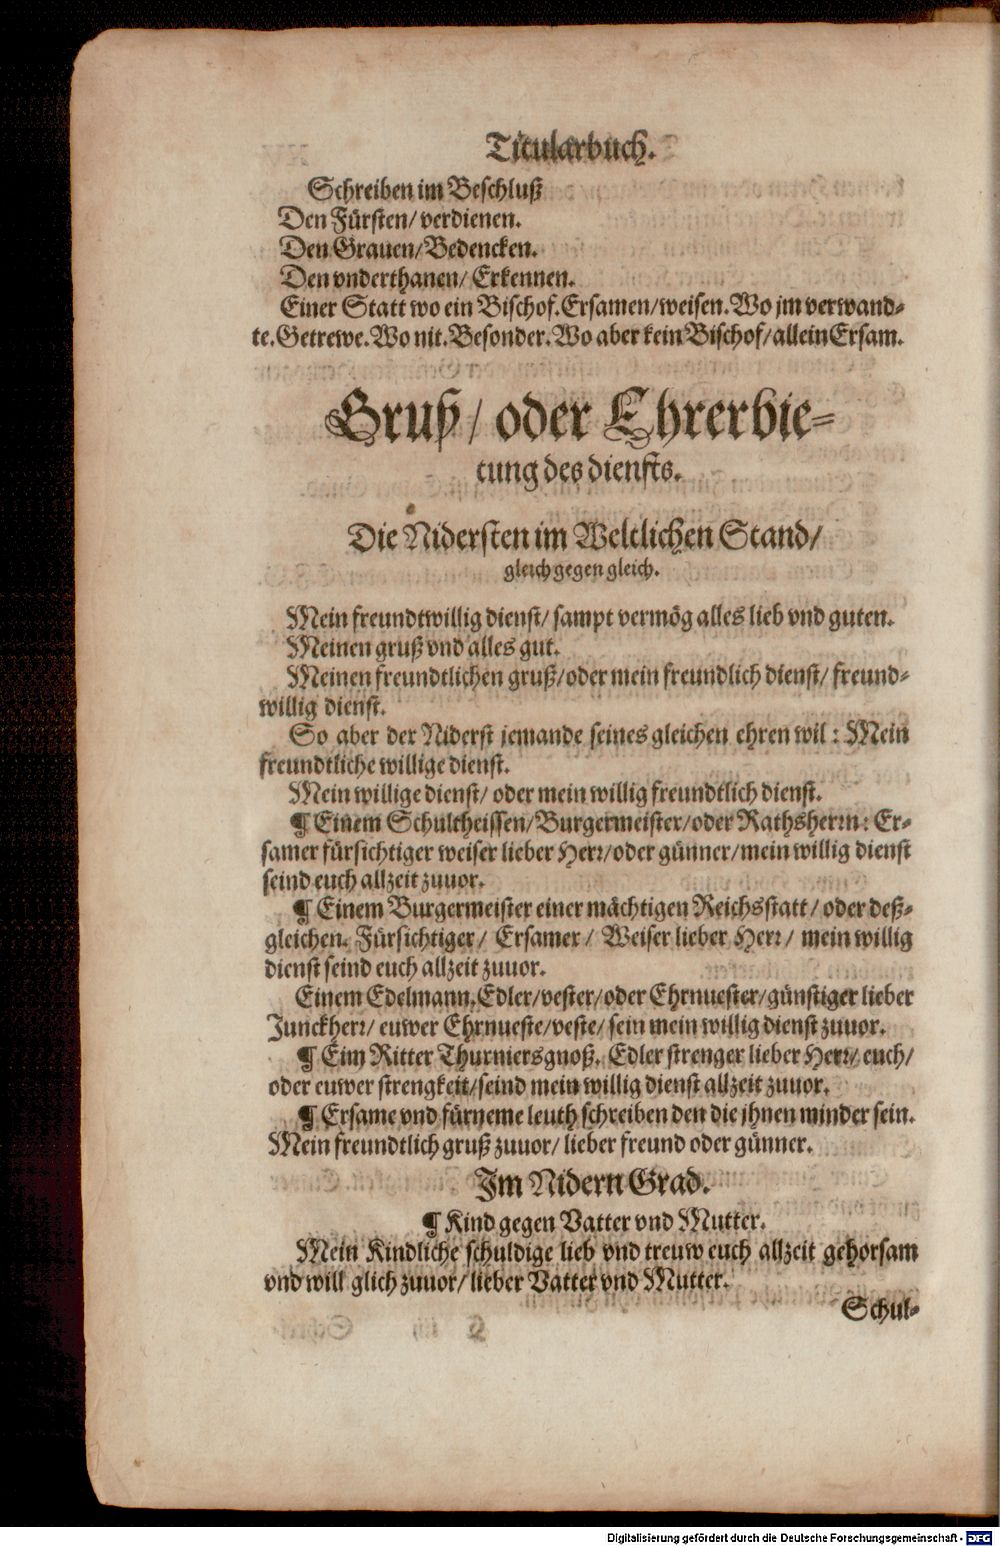 Titularbuch.
Schreiben im Beschluß
Den Fürsten/ verdienen.
Den Grauen/ Bedencken.
Den vnderthanen/ Erkennen.
Einer Statt wo ein Bischof. Ersamen/ weisen. Wo jm verwand-
te. Getrewe. Wo nit. Besonder. Wo aber kein Bischof/ allein Ersam.
Gruß/ oder Ehrerbie-
tung des diensts.
Die Nidersten im Weltlichen Stand/
gleich gegen gleich.
Mein freundtwillig dienst/ sampt vermög alles lieb vnd guten.
Meinen gruß vnd alles gut.
Meinen freundtlichen gruß/ oder mein freundlich dienst/ freund-
willig dienst.
So aber der Niderst jemande seines gleichen ehren wil: Mein
freundtliche willige dienst.
Mein willige dienst/ oder mein willig freundtlich dienst.
¶ Einem Schultheissen/ Burgermeister/ oder Rathsherrn: Er-
samer fürsichtiger weiser lieber Herr/ oder günner/ mein willig dienst
seind euch allzeit zuuor.
¶ Einem Burgermeister einer mächtigen Reichsstatt/ oder deß-
gleichen. Fürsichtiger/ Ersamer/ Weiser lieber Herr/ mein willig
dienst seind euch allzeit zuuor.
Einem Edelmann. Edler/ vester/ oder Ehrnuester/ günstiger lieber
Junckherr/ euwer Ehrnueste/ veste/ sein mein willig dienst zuuor.
¶ Eim Ritter Thurniersgnoß. Edler strenger lieber Herr/ euch/
oder euwer strengkeit/ seind mein willig dienst allzeit zuuor.
¶ Ersame vnd fürneme leuth schreiben den die jhnen minder sein.
Mein freundtlich gruß zuuor/ lieber freund oder günner.
Im Nidern Grad.
¶ Kind gegen Vatter vnd Mutter.
Mein Kindliche schuldige lieb vnd treuw euch allzeit gehorsam
vnd will glich zuuor/ lieber Vatter vnd Mutter.
Schul-
Digitalisierung gefördert durch die Deutsche Forschungsgemeinschaft - DFG